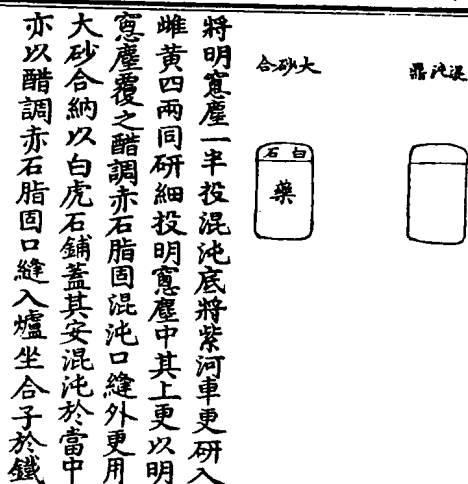 混沌鼎
大砂合
白石
藥
將明窻塵一半投混沌底將紫河車更研入
雌黃四兩同研細投明窻塵中其上更以明
窻塵覆之醋調赤石脂固混沌口縫外更用
大砂合納以白虎石鋪蓋其安混沌於當中
亦以醋調赤石脂固口縫入爐坐合子於鐵